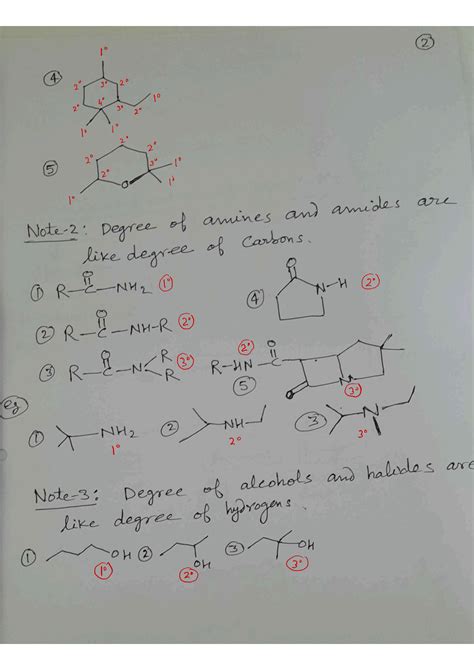 ②
④ 1° 2° 3° 2° 2° 4° 3° 1° 1° 1° 2° 1°
⑤ 2° 2° 2° 2° 3° 1° 1° 1° O
Note-2: Degree of amines and amides are
like degree of Carbons.
① R-C-NH2 1° O
② R-C-NH-R 2° O
③ R-C-N R R 3° O
④ O N-H 2°
⑤ R-HN-C 2° O O N 3°
eg
① NH2 1°
② NH 2°
③ N 3°
Note-3: Degree of alcohols and halides are
like degree of hydrogens.
① OH 1°
② OH 2°
③ OH 3°